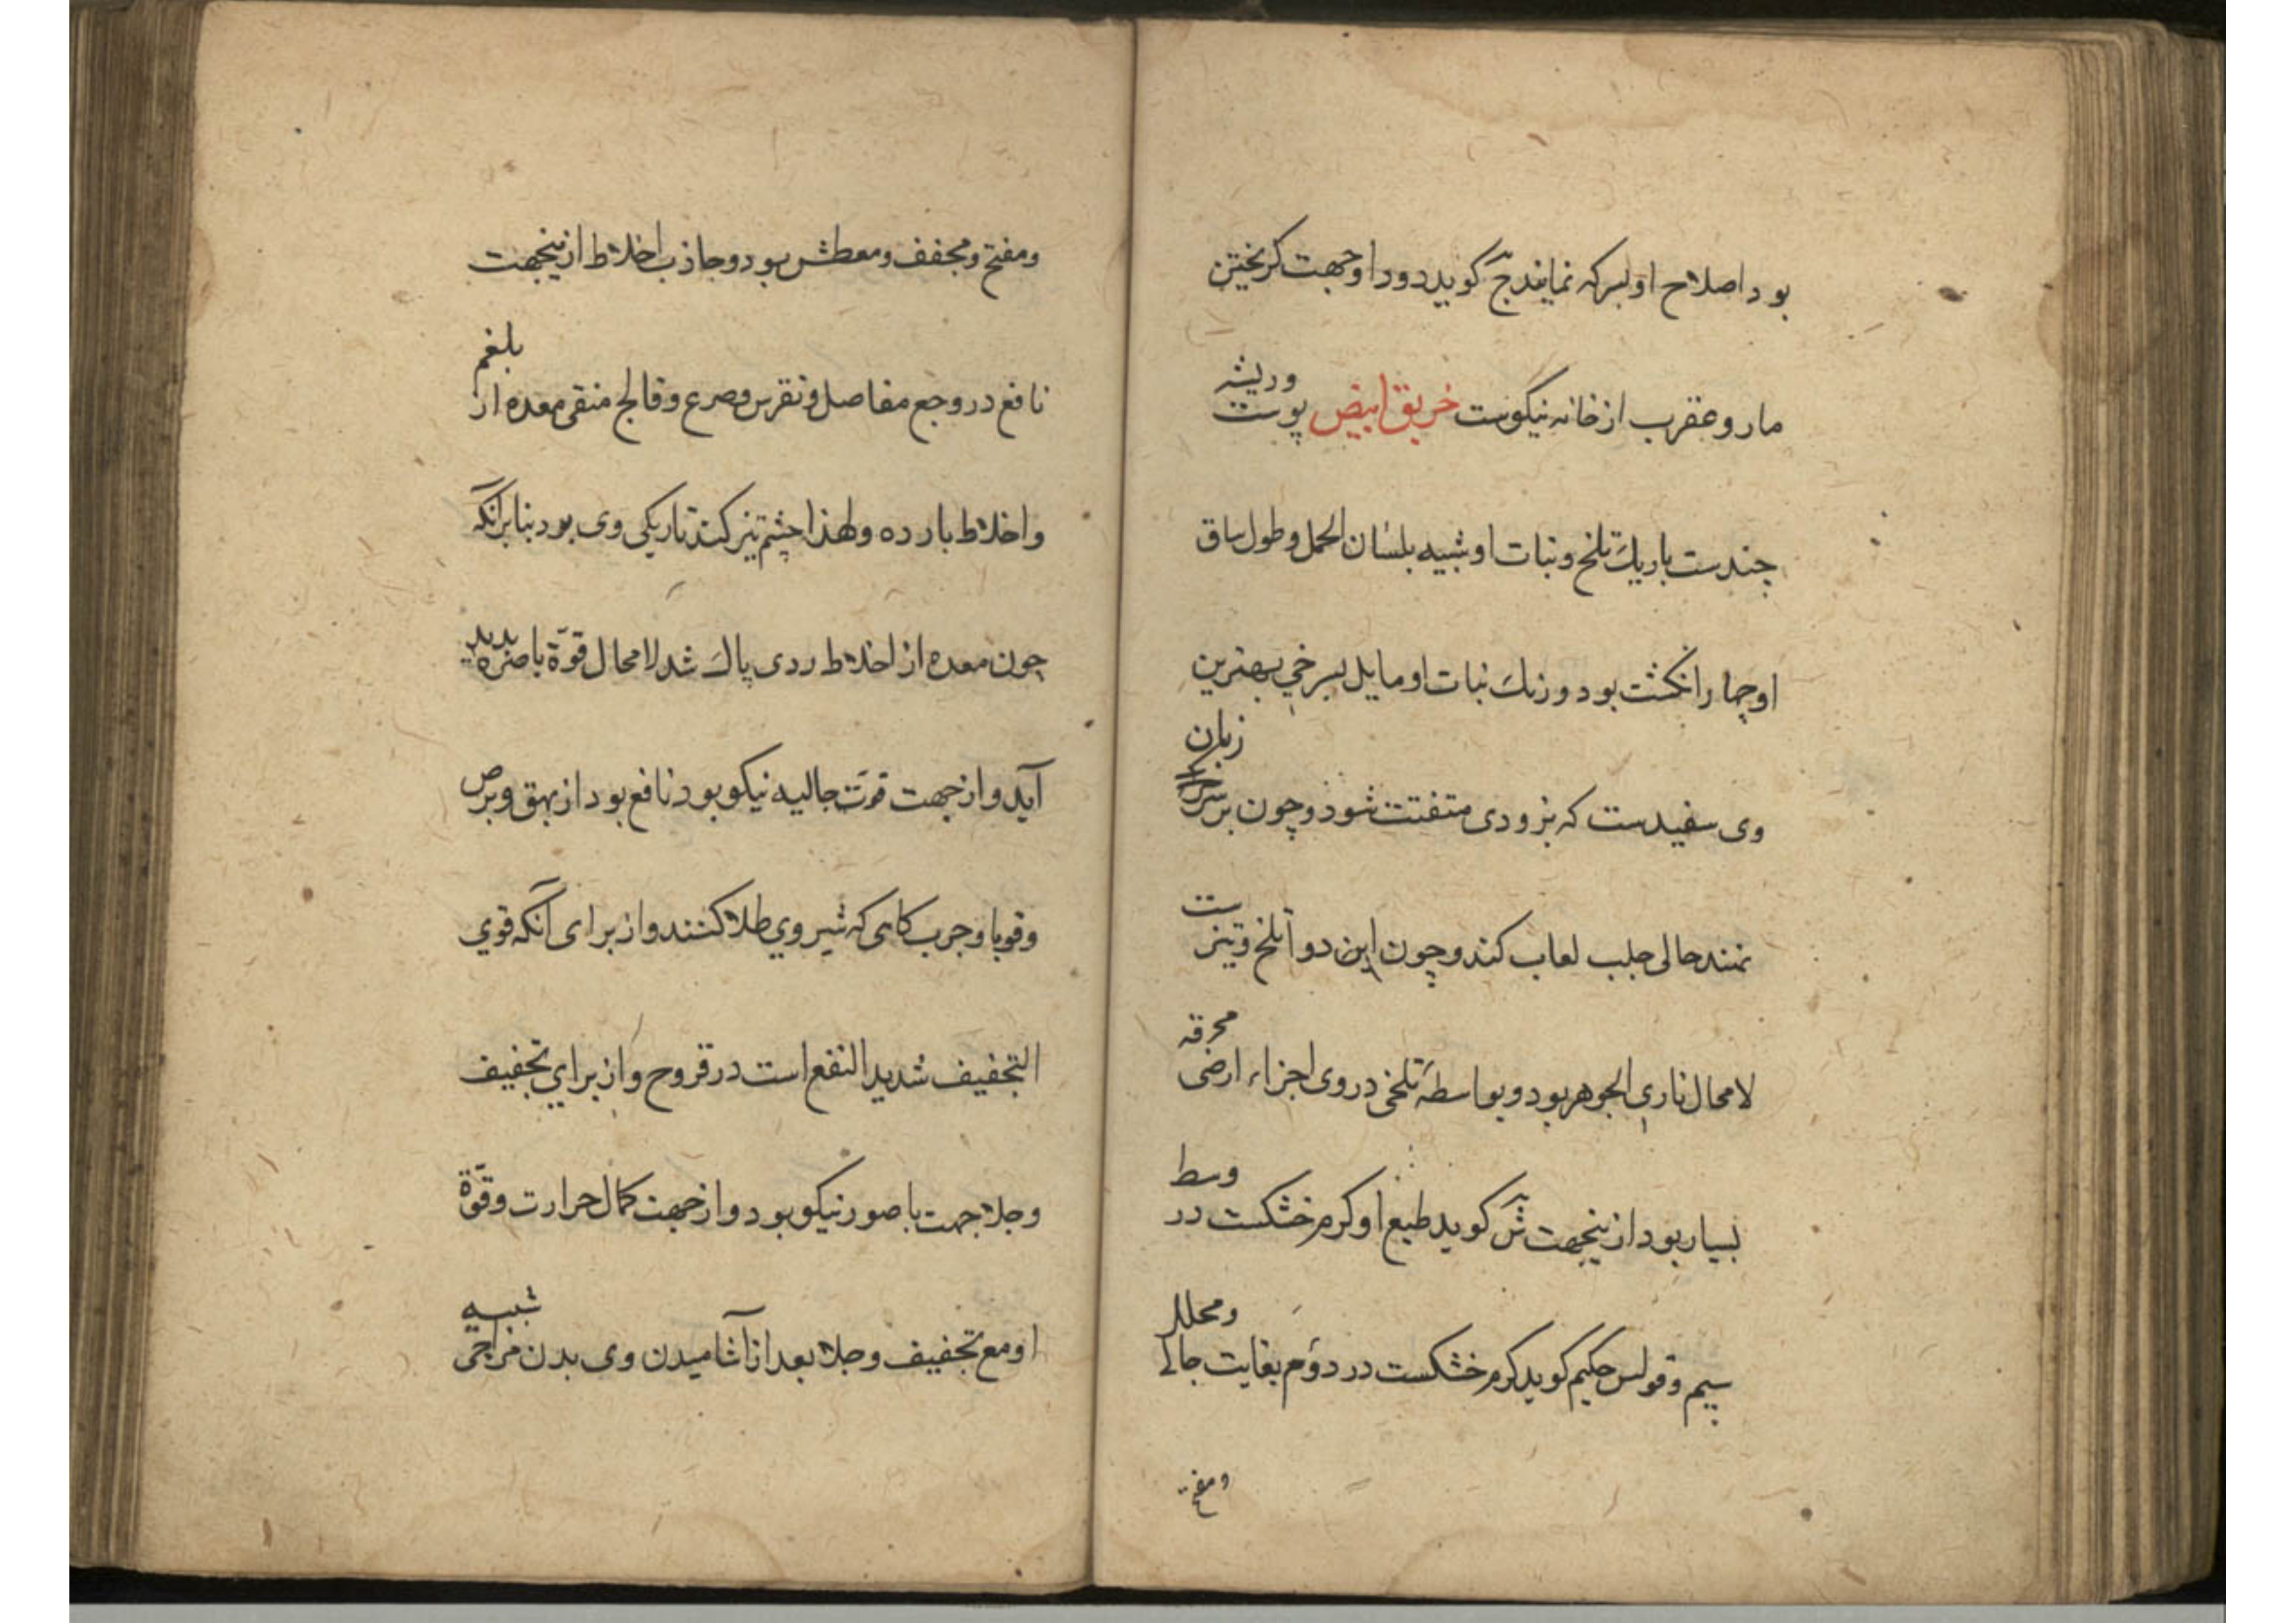 بود اصلاح او بسرکه نمایند ج کوید دود او جهت کریختن
مار و عقرب از خانه نیکوست خربق ابیض پوست وریشه
چندست باریك تلخ و نبات او شبیه بلسان الحمل و طول ساق
او چهار انکشت بود و رنك نبات او مایل بسرخی بهترین
وی سفیدست که بزودی متفتت شود و چون بر سر زبان
نهند حالی جلب لعاب کند و چون این دوا تلخ و تیز ست
لامحال ناری الجوهر بود و بواسطهٔ تلخی در وی اجزاء ارضی محرقه
بسیار بود ازینجهت ش کوید طبع او کرم خشکست در وسط
سیم و قولس حکیم کوید کرم خشکست در دوم بغایت جالی ومحلل
ومفتح
ومفتح ومجفف ومعطش بود وجاذب اخلاط ازینجهت
نافع در وجع مفاصل ونقرس وصرع وفالج منقی معده از بلغم
واخلاط بارده ولهذا چشم تیز کند تاریکی وی بود بنابرانکه
چون معده از اخلاط ردی پاك شد لامحال قوّة باصره پدید
آید واز جهت قوّت جالیه نیکو بود نافع بود از بهق وبرص
وقوبا وجرب کاهی که شیر وی طلا کنند واز برای آنکه قوی
التجفیف شدید النفع است در قروح واز برای تجفیف
وجلا جهت باصور نیکو بود واز جهت کمال حرارت وقوّة
او مع تجفیف وجلا بعد از آشامیدن وی بدن مزاجی شبیه